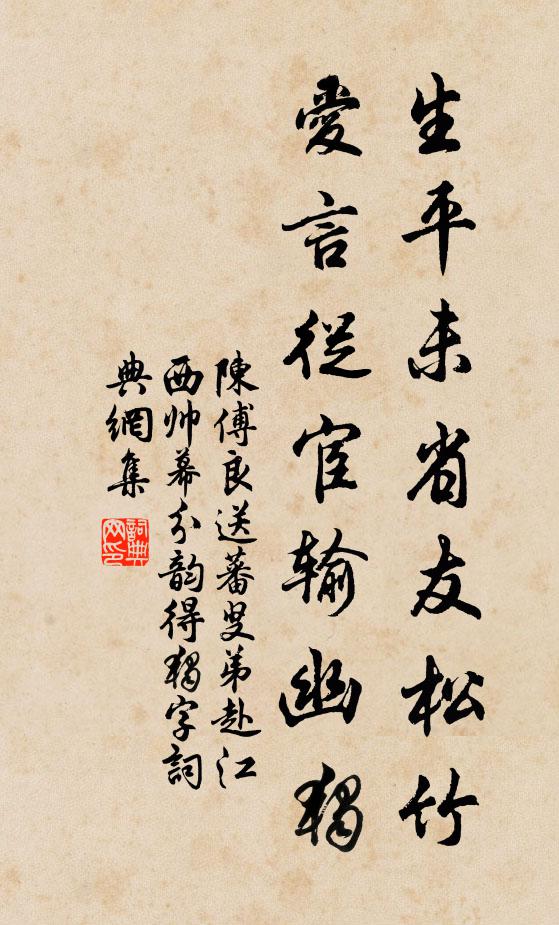 生平未省友松竹
愛言從宦输幽獨
陳傅良送蕃叟弟赴江
西帅幕分韵得獨字詞
典網集
詞典網印